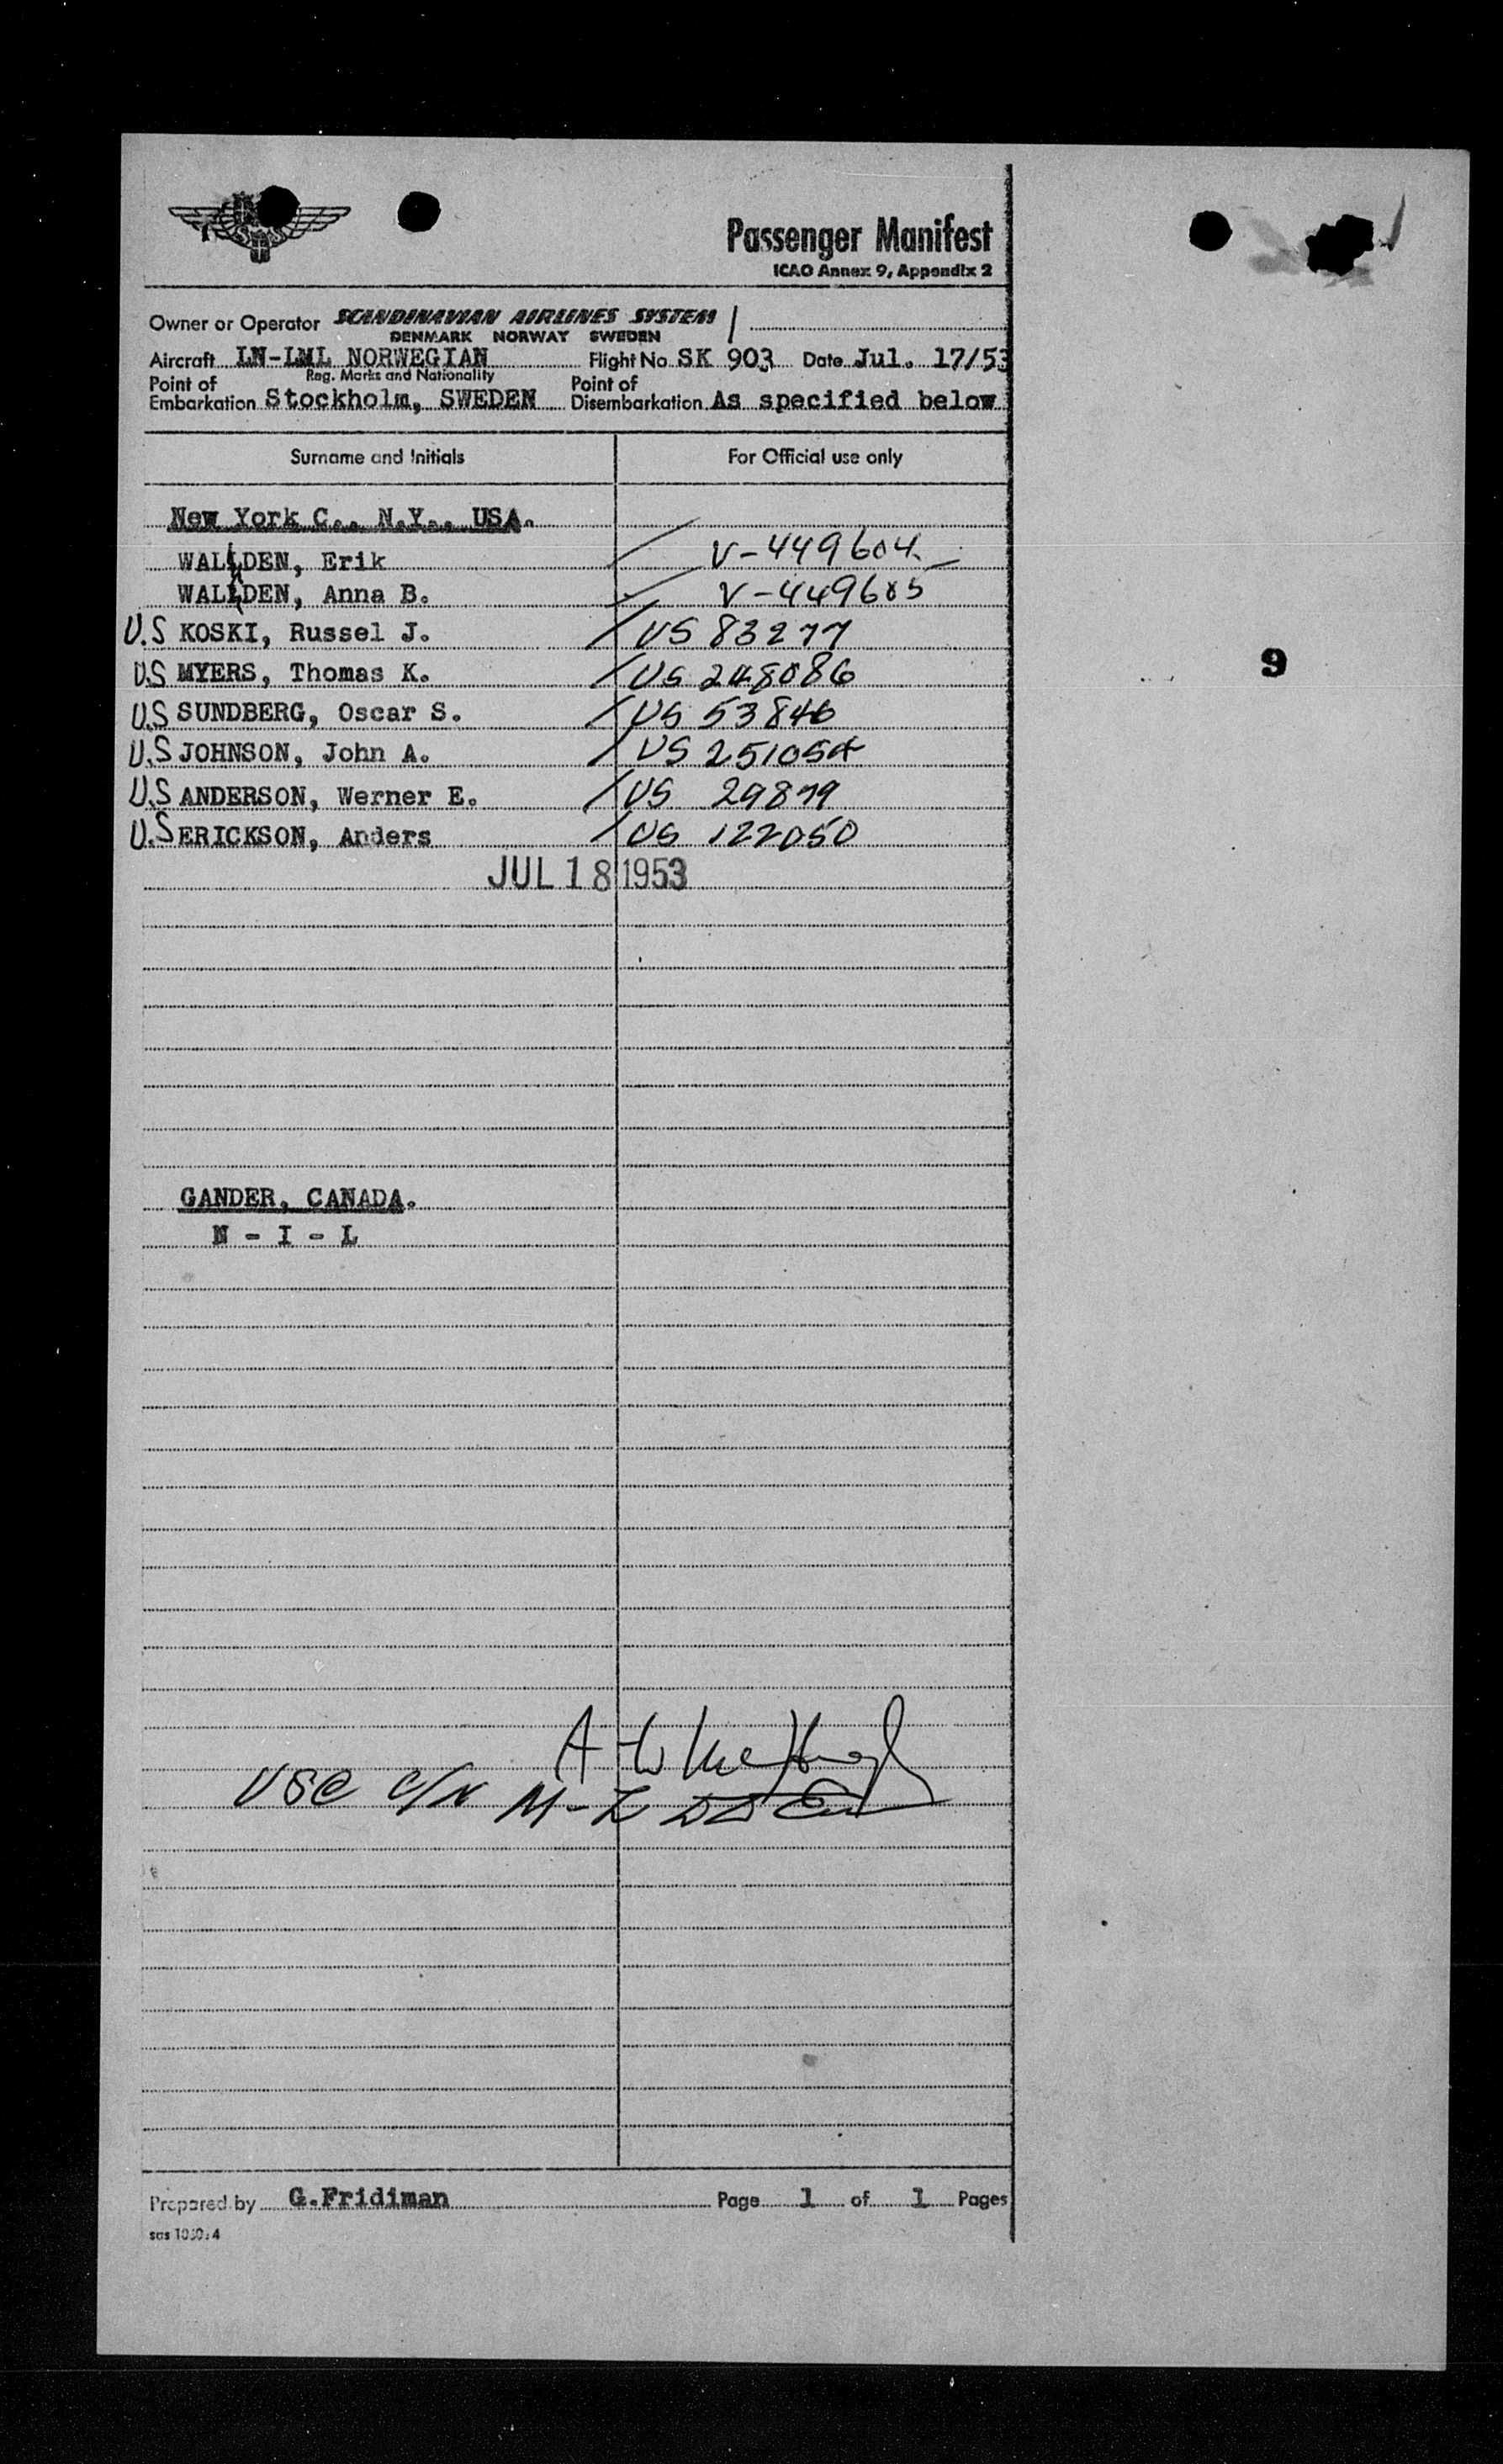 Passenger Manifest
ICAO Annex 9, Appendix 2
Owner or Operator SCANDINAVIAN AIRLINES SYSTEM
DENMARK NORWAY SWEDEN
Aircraft LN-LML NORWEGIAN Flight No. SK 903 Date Jul. 17/53
Reg. Marks and Nationality
Point of Embarkation Stockholm, SWEDEN Point of Disembarkation As specified below
Surname and Initials For Official use only
New York C., N.Y., USA.
WALLDEN, Erik V-449604
WALLDEN, Anna B. V-449605
U.S KOSKI, Russel J. US 83277
U.S MYERS, Thomas K. US 248086
U.S SUNDBERG, Oscar S. US 53846
U.S JOHNSON, John A. US 251054
U.S ANDERSON, Werner E. US 29879
U.S ERICKSON, Anders US 122050
JUL 18 1953
9
GANDER, CANADA.
N - I - L
USC c/n M-Z
Prepared by G.Fridiman Page 1 of 1 Pages